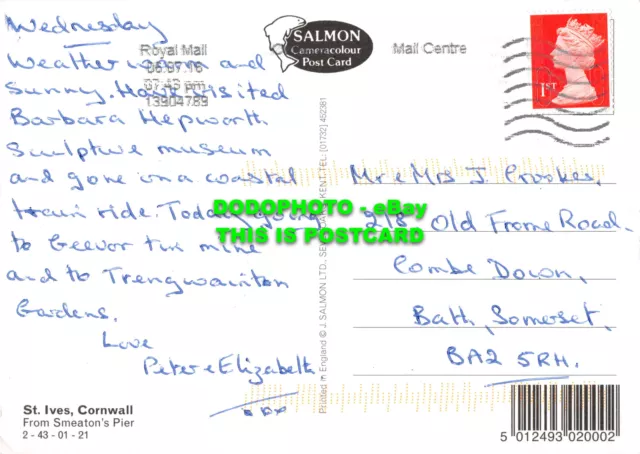 Wednesday
Weather warm and
Sunny. Have visited
Barbara Hepworth
Sculpture museum
and gone on a coastal
train ride. Today going
to Geevor tin mine
and to Trengwainton
Gardens.
Love
Peter & Elizabeth
xxx
St. Ives, Cornwall
From Smeaton's Pier
2 - 43 - 01 - 21
Royal Mail
06.07.16
07:43 pm
13904789
SALMON
Cameracolour
Post Card
Mail Centre
1ST
Printed in England © J. SALMON LTD., SEVENOAKS, KENT. TEL: (01732) 452381
Mr & Mrs J. Crookes,
218 Old Frome Road
Combe Down,
Bath, Somerset,
BA2 5RH.
DODOPHOTO - eBay
THIS IS POSTCARD
5 012493 020002